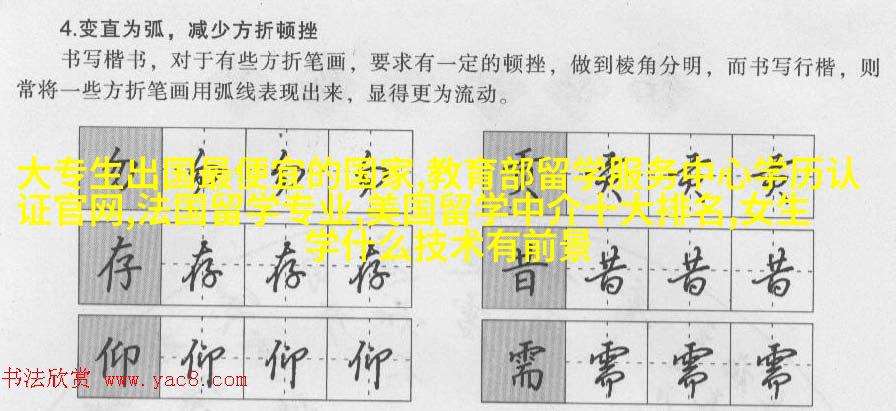 4.变直为弧，减少方折顿挫
书写楷书，对于有些方折笔画，要求有一定的顿挫，做到棱角分明，而书写行楷，则
常将一些方折笔画用弧线表现出来，显得更为流动。
大专生出国最便宜的国家,教育部留学服务中心学历认
证官网,法国留学专业,美国留学中介十大排名,女生
学什么技术有前景
存 存 存 存
昔 昔 昔 昔
仰 仰 仰 仰
需 需 需 需
书法欣赏 www.yac8.com